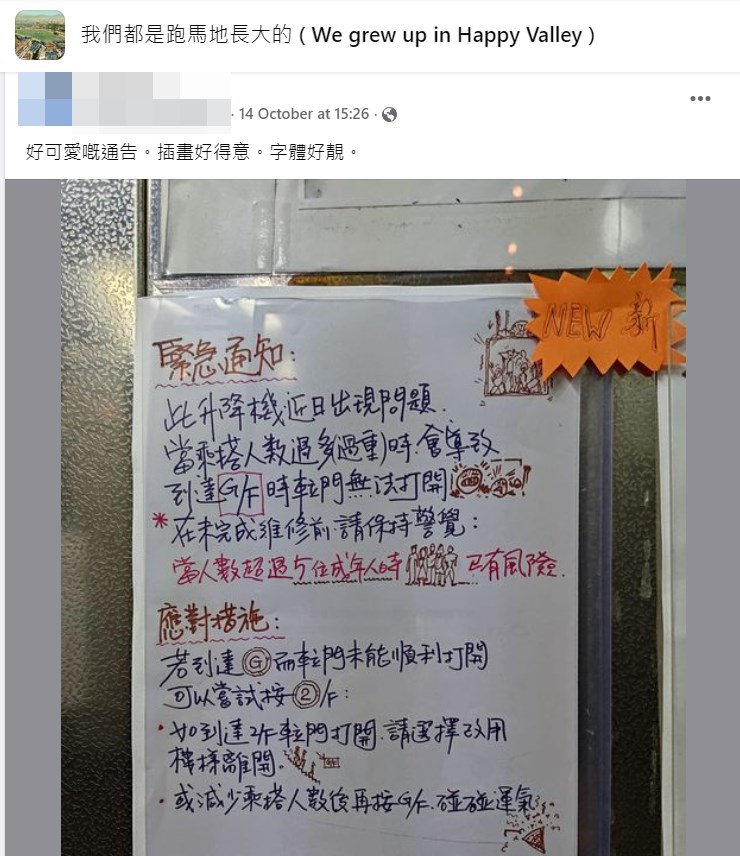 我們都是跑馬地長大的 ( We grew up in Happy Valley )
· 14 October at 15:26 ·
好可愛嘅通告。插畫好得意。字體好靚。
NEW 新
緊急通知:
此升降機近日出現問題.
當乘搭人數過多(過重)時.會導致
到達G/F時䡆門無法打開
*在未完成維修前請保持警覺:
當人數超過5位成年人時 已有風險.
應對措施:
若到達Ⓖ而䡆門未能順利打開
可以嘗試按②/F:
·如到達2/F䡆門打開.請選擇改用
樓梯離開.
·或減少乘搭人數後再按G/F.碰碰運氣